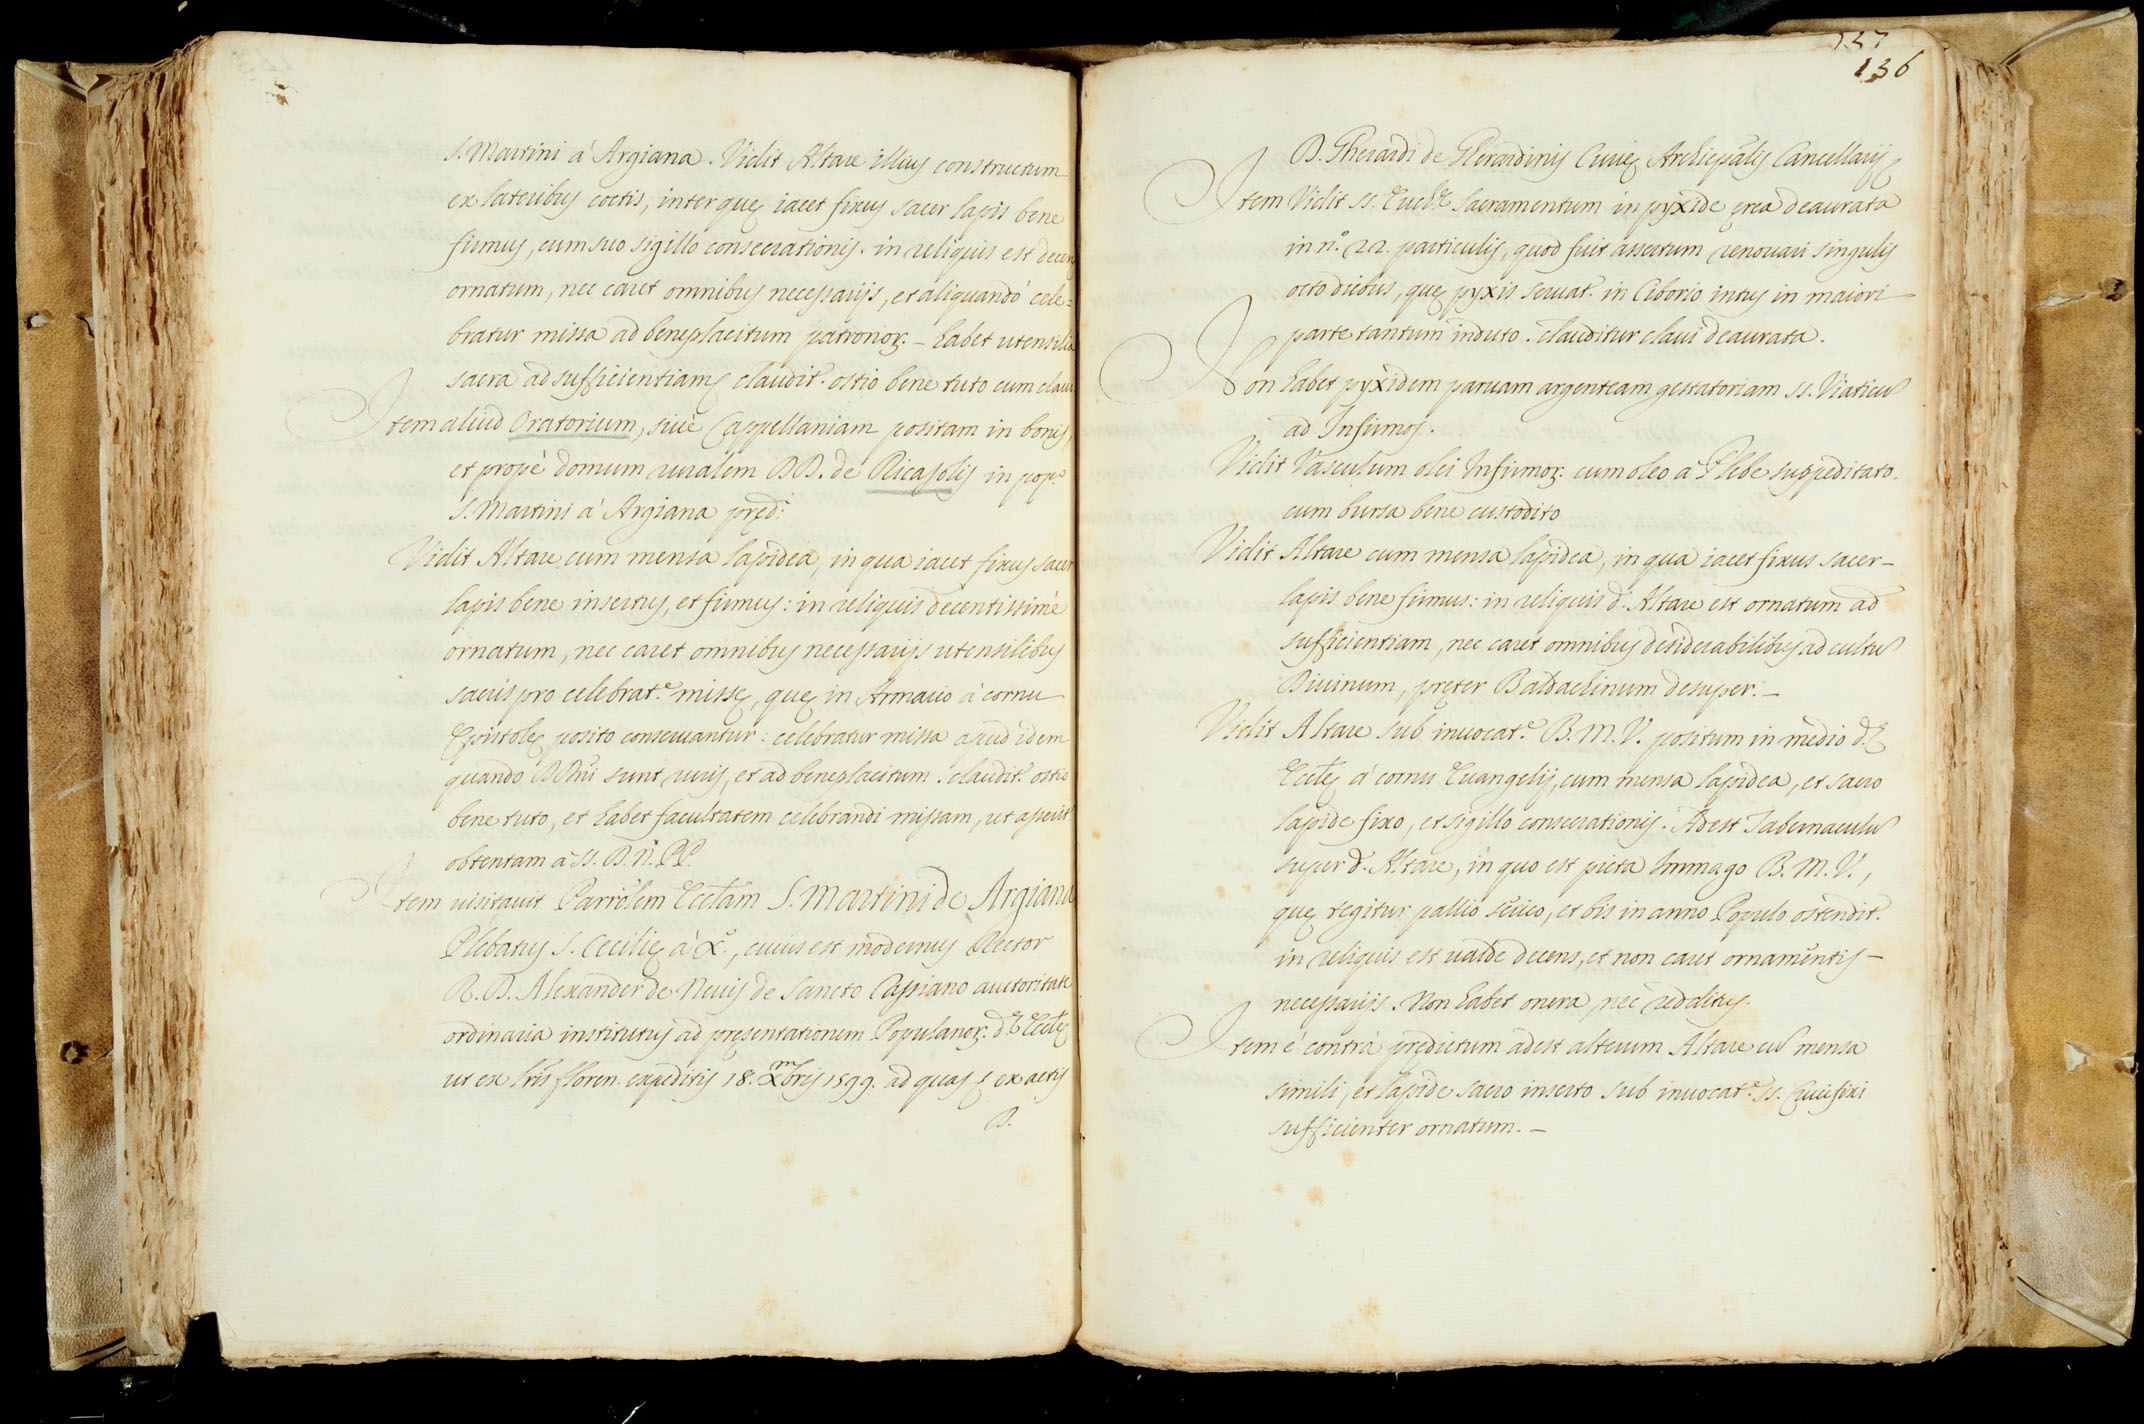 S. Martini à Argiana. Vidit Altare illius constructum
ex lateribus coctis, inter quę iacet fixus sacer lapis bene
firmus, cum suo sigillo consecrationis. in reliquis est decens
ornatum, nec caret omnibus necessarijs, et aliquandó cele=
bratur missa ad beneplacitum patronoꝝ. – habet utensilia
sacra ad sufficientiam, claudit. ostio bene tuto cum claui
Item aliud Oratorium, siuè Cappellaniam positam in bonis,
et propè domum ruralem DD. de Ricasolis in pop.º
S. Martini à Argiana pręd.i
Vidit Altare cum mensa lapidea, in qua iacet fixus sacer
lapis bene insertus, et firmus: in reliquis decentissimè
ornatum, nec caret omnibus necessarijs utensilibus
sacris pro celebrat.e missę, quę in Armario à cornu
Epistolę posito conseruantur: celebratur missa apud idem
quando DDni sunt ruris, et ad beneplacitum. claudit. ostio
bene tuto, et habet facultatem celebrandi missam, ut asserit.
obtentam à SS. D. N. PP.
Item uisitauit Parrolem Ecclam S. Martini de Argiana
Plebatus S. Cecilię à X.º, cuius est modernus Rector
R. D. Alexander de Neuis de Sancto Cassiano auctoritate
ordinaria institutus ad pręsentationem Populanoꝝ. d.ę Ecclę
ut ex lris floren. expeditis 18. Xmbris 1599. ad quas et ex actis
D.
157
136
D. Gherardi de Gherardinis Curię Archiepalis Cancellarij
Item Vidit SS. Euch.e Sacramentum in pyxide ęrea deaurata
in n.º 22. particulis, quod fuit assertum renouari singulis
octo diebus, quę pyxis seruat. in Ciborio intus in maiori
parte tantum induto. clauditur claui deaurata.
Non habet pyxidem paruam argenteam gestatoriam SS. Viaticu
ad Infirmos.
Vidit Vasculum olei Infirmoꝝ. cum oleo a Plebe suppeditato.
cum bursa bene custodito
Vidit Altare cum mensa lapidea, in qua iacet fixus sacer –
lapis bene firmus: in reliquis d. Altare est ornatum ad
sufficientiam, nec caret omnibus desiderabilibus ad cultu
Diuinum, pręter Baldachinum desuper. –
Vidit Altare sub inuocat.e B. M. V. positum in medio d.ę
Ecclę à cornu Euangelij, cum mensa lapidea, et sacro
lapide fixo, et sigillo consecrationis. Adest Tabernaculu
super d. Altare, in quo est picta Immago B. M. V.,
quę tegitur pallio serico, et bis in anno Populo ostendit.
in reliquis est ualde decens, et non caret ornamentis –
necessarijs. Non habet onera, nec redditus.
Item è contrà prędictum adest alterum Altare cu mensa
simili, et lapide sacro inserto sub inuocat.e SS. Crucifixi
sufficienter ornatum. –